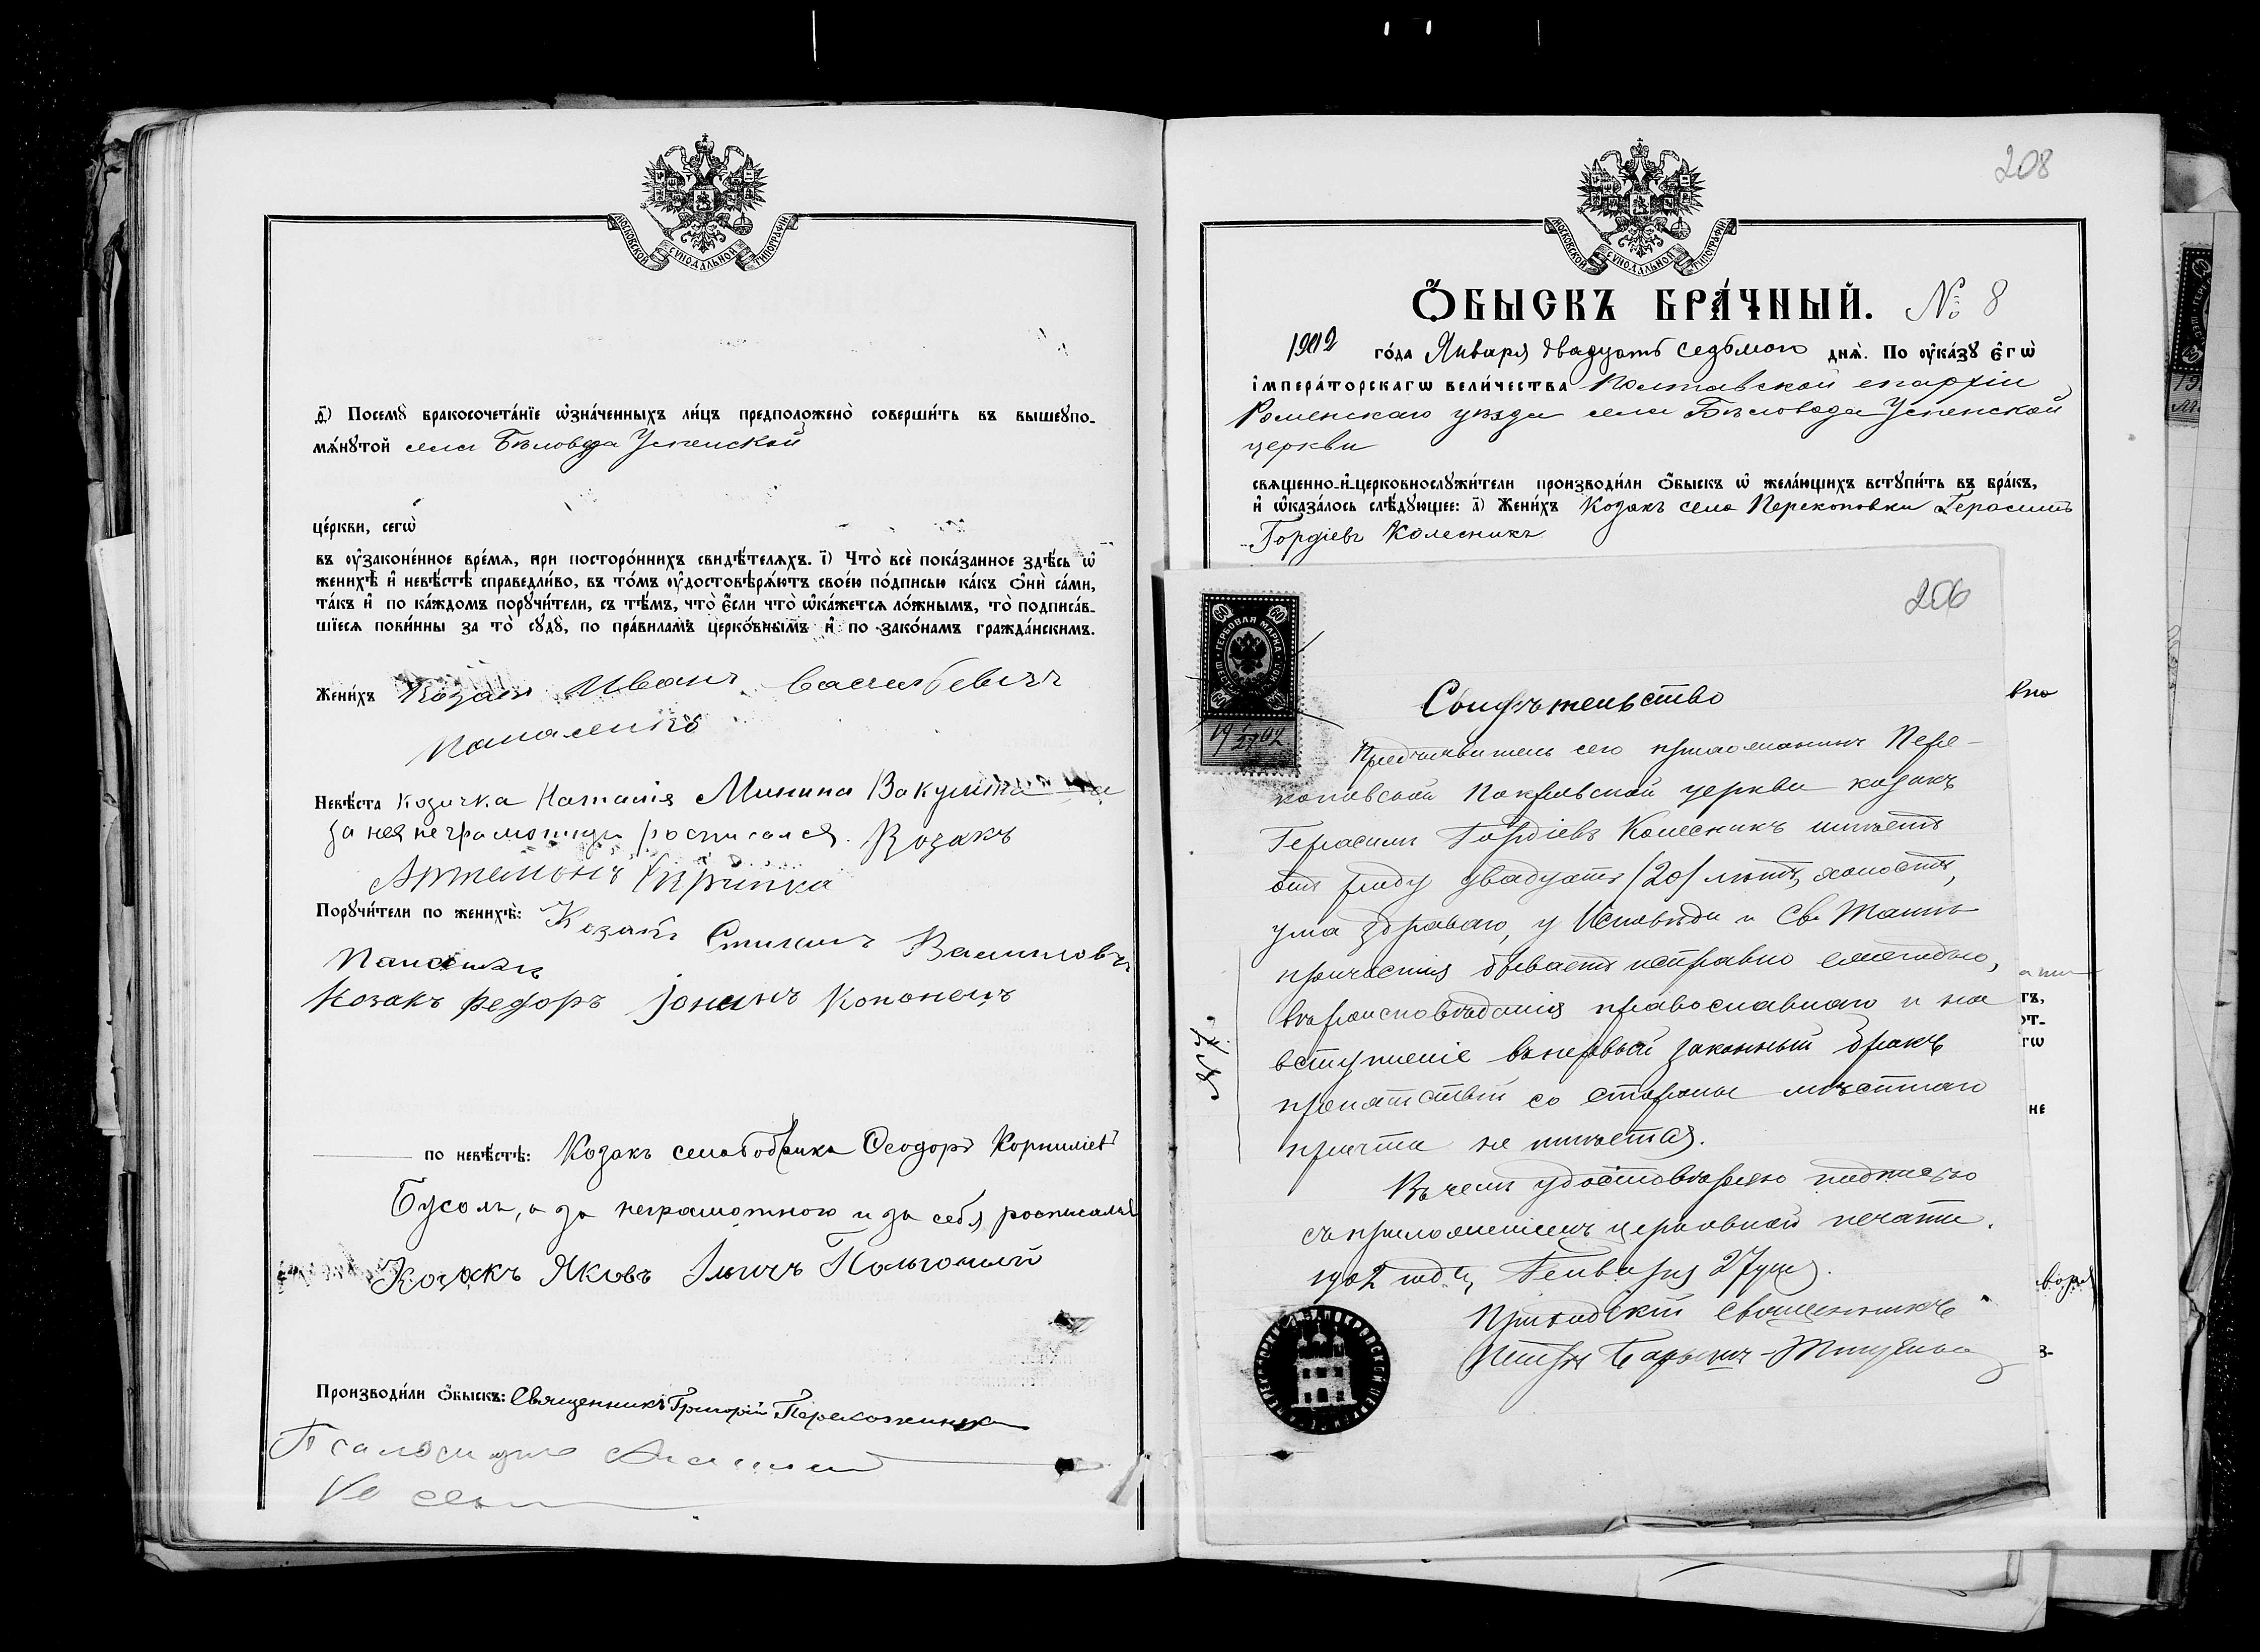 МОСКОВСКОЙ СУНОДАЛЬНОЙ ТИПОГРАФІИ
д҃) Посемꙋ̀ бракосочета́нїе ѡ҆зна́ченныхъ ли́цъ предположено̀ соверши́ть въ вышеупо-
мѧ́нꙋтой села Бѣловода Успенской
це́ркви, сегѡ̀
въ оу҆законе́нное вре́мѧ, при посторо́ннихъ свидѣ́телѧхъ. і҃) Что̀ всѐ пока́занное здѣ́сь ѡ҆
женихѣ̀ и҆ невѣ́стѣ справедли́во, въ то́мъ оу҆достовѣрѧ́ютъ свое́ю по́дписью ка́къ ѻ҆нѝ са́ми,
та́къ и҆ по ка́ждомъ порꙋчи́тели, съ тѣ́мъ, что̀ є҆́сли что̀ ѡ҆ка́жется ло́жнымъ, то̀ подписа́в-
шїеся пови́нны за то̀ сꙋдꙋ̀, по пра́виламъ церко́внымъ и҆ по зако́намъ гражда́нскимъ.
Жени́хъ Козакъ Иванъ Васильевичъ
Невѣ́ста козачка Наталія Минина Вакуленкова
за нея неграмотную росписался Козакъ
Артемонъ
Порꙋчи́тели по женихѣ̀: Козакъ
Козакъ Федоръ Іонинъ Кононецъ
по невѣ́стѣ: Козакъ села Бобрика Ѳеодоръ Корниліев
Бусолъ, а за неграмотного и за себя росписался
Козакъ Яковъ
Производи́ли ѻ҆́быскъ: Священникъ Григорій
208
МОСКОВСКОЙ СУНОДАЛЬНОЙ ТИПОГРАФІИ
Ѻ҆́БЫСКЪ БРА́ЧНЫЙ. № 8
1902 го́да Января двадцать седьмого днѧ̀. По оу҆ка́зꙋ є҆гѡ̀
і҆мпера́торскагѡ вели́чества Полтавской епархіи
Роменскаго уѣзда села Бѣловода Успенской
церкви
свѧщенно-и҆-церковнослꙋжи́тели производи́ли ѻ҆́быскъ ѡ҆ жела́ющихъ встꙋпи́ть въ бра́къ,
и҆ ѡ҆каза́лось слѣ́дꙋющее: а҃) Жени́хъ Козакъ села Перекоповки Герасимъ
Гордіевъ Колесникъ
206
60 ГЕРБОВАЯ МАРКА 60
19 27/I 02
Свидѣтельство
Предъявитель сего прихожанинъ Пере-
коповской Покровской церкви козакъ
Герасимъ Гордіевъ Колесникъ имѣетъ
отъ роду двадцать /20/ лѣтъ, холостъ,
ума здраваго, у Исповѣди и Св. Таинъ
причастія бываетъ исправно ежегодно,
вѣроисповѣданія православнаго и на
вступленіе въ первый законный бракъ
препятствій со стороны мѣстнаго
причта не имѣется.
Въ чемъ удостовѣряю подписью
съ приложеніемъ церковной печати.
1902 года, Генваря 27 дня.
№ 7.
Приходскій священникъ
Петръ